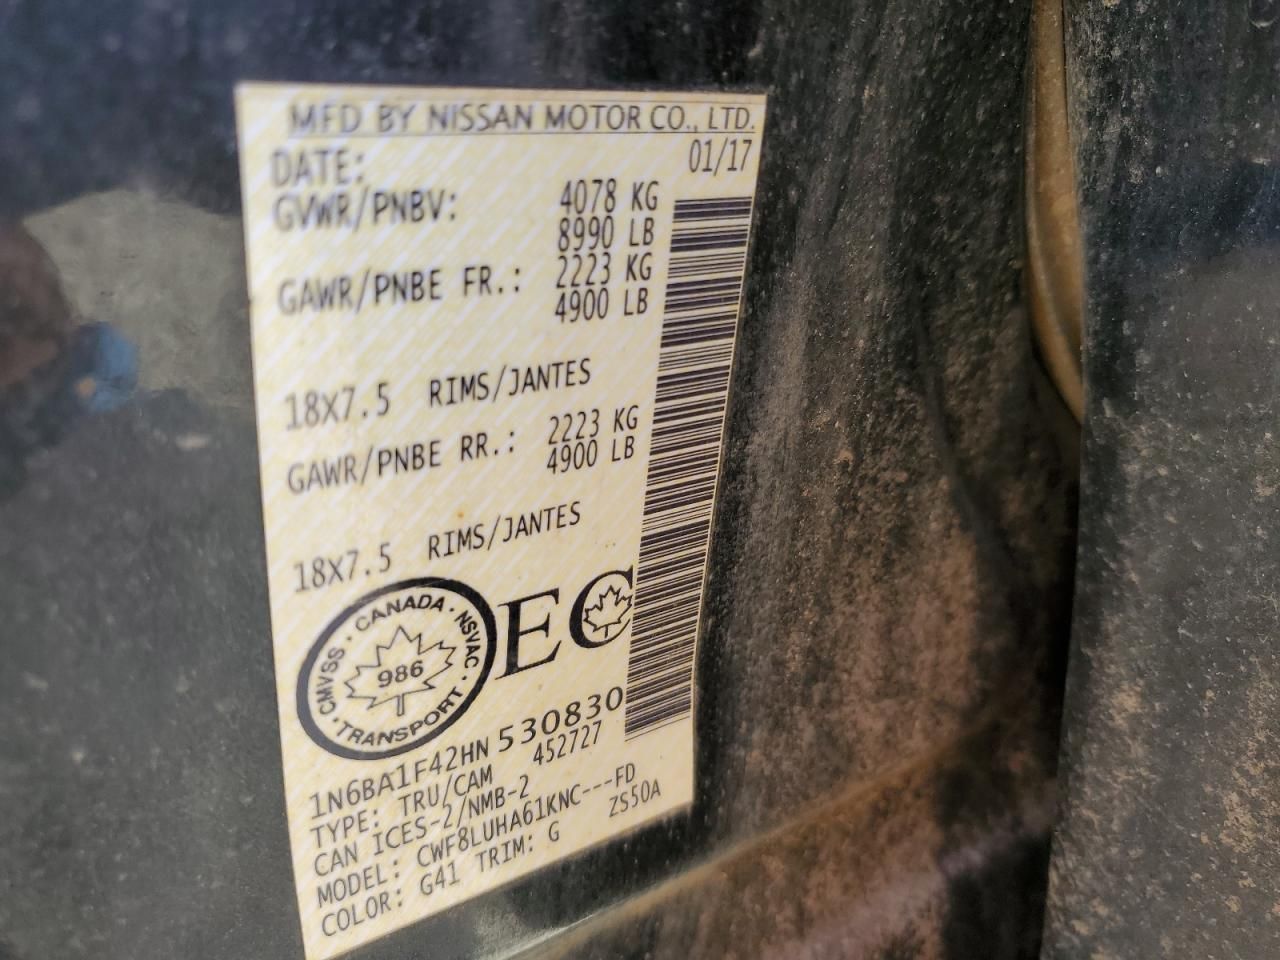 MFD BY NISSAN MOTOR CO., LTD.
DATE: 01/17
GVWR/PNBV: 4078 KG
8990 LB
GAWR/PNBE FR.: 2223 KG
4900 LB
18X7.5 RIMS/JANTES
GAWR/PNBE RR.: 2223 KG
4900 LB
18X7.5 RIMS/JANTES
CMVSS · CANADA · NSVAC · TRANSPORT ·
986
EC
1N6BA1F42HN530830
TYPE: TRU/CAM 452727
CAN ICES-2/NMB-2
MODEL: CWF8LUHA61KNC---FD
COLOR: G41 TRIM: G ZS50A